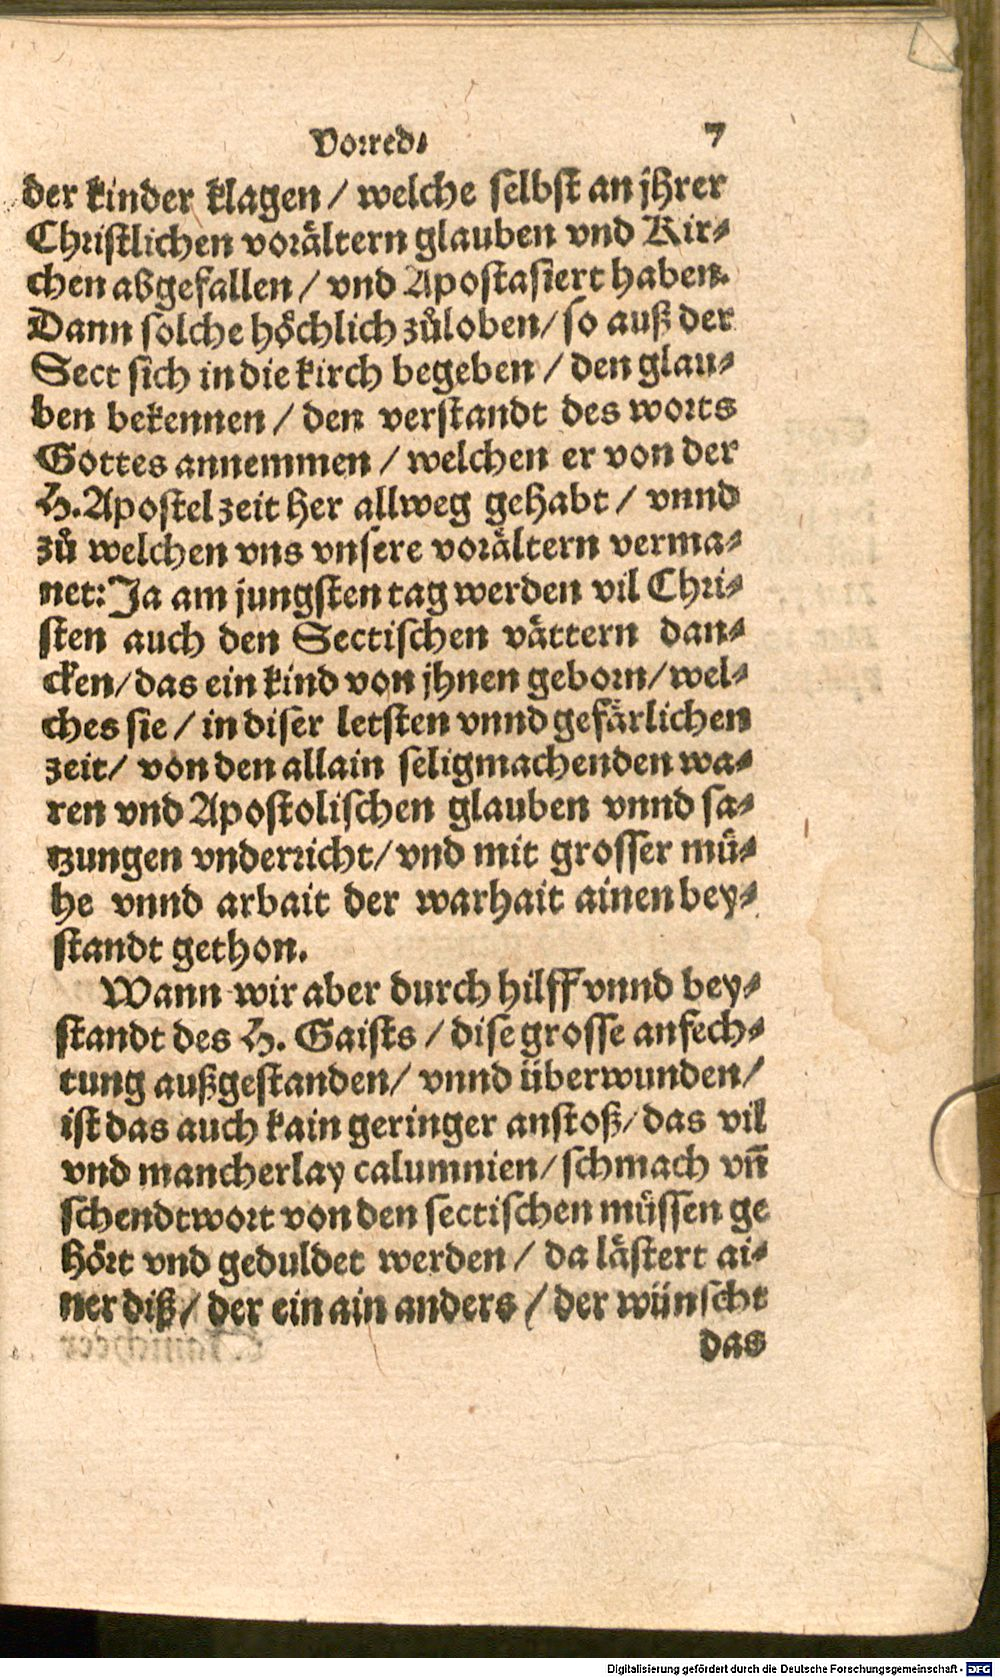 Vorred. 7
der kinder klagen / welche selbst an jhrer
Christlichen vorältern glauben vnd Kir-
chen abgefallen / vnd Apostasiert haben.
Dann solche höchlich zůloben / so auß der
Sect sich in die kirch begeben / den glau-
ben bekennen / den verstandt des worts
Gottes annemmen / welchen er von der
H. Apostel zeit her allweg gehabt / vnnd
zů welchen vns vnsere vorältern verma-
net: Ja am jungsten tag werden vil Chri-
sten auch den Sectischen vättern dan-
cken / das ein kind von jhnen geborn / wel-
ches sie / in diser letsten vnnd gefärlichen
zeit / von den allain seligmachenden wa-
ren vnd Apostolischen glauben vnnd sa-
tzungen vnderricht / vnd mit grosser mü-
he vnnd arbait der warhait ainen bey-
standt gethon.
Wann wir aber durch hilff vnnd bey-
standt des H. Gaists / dise grosse anfech-
tung außgestanden / vnnd überwunden /
ist das auch kain geringer anstoß / das vil
vnd mancherlay calumnien / schmach vñ
schendtwort von den sectischen müssen ge
hört vnd geduldet werden / da lästert ai-
ner diß / der ein ain anders / der wünscht
das
Digitalisierung gefördert durch die Deutsche Forschungsgemeinschaft - DFG